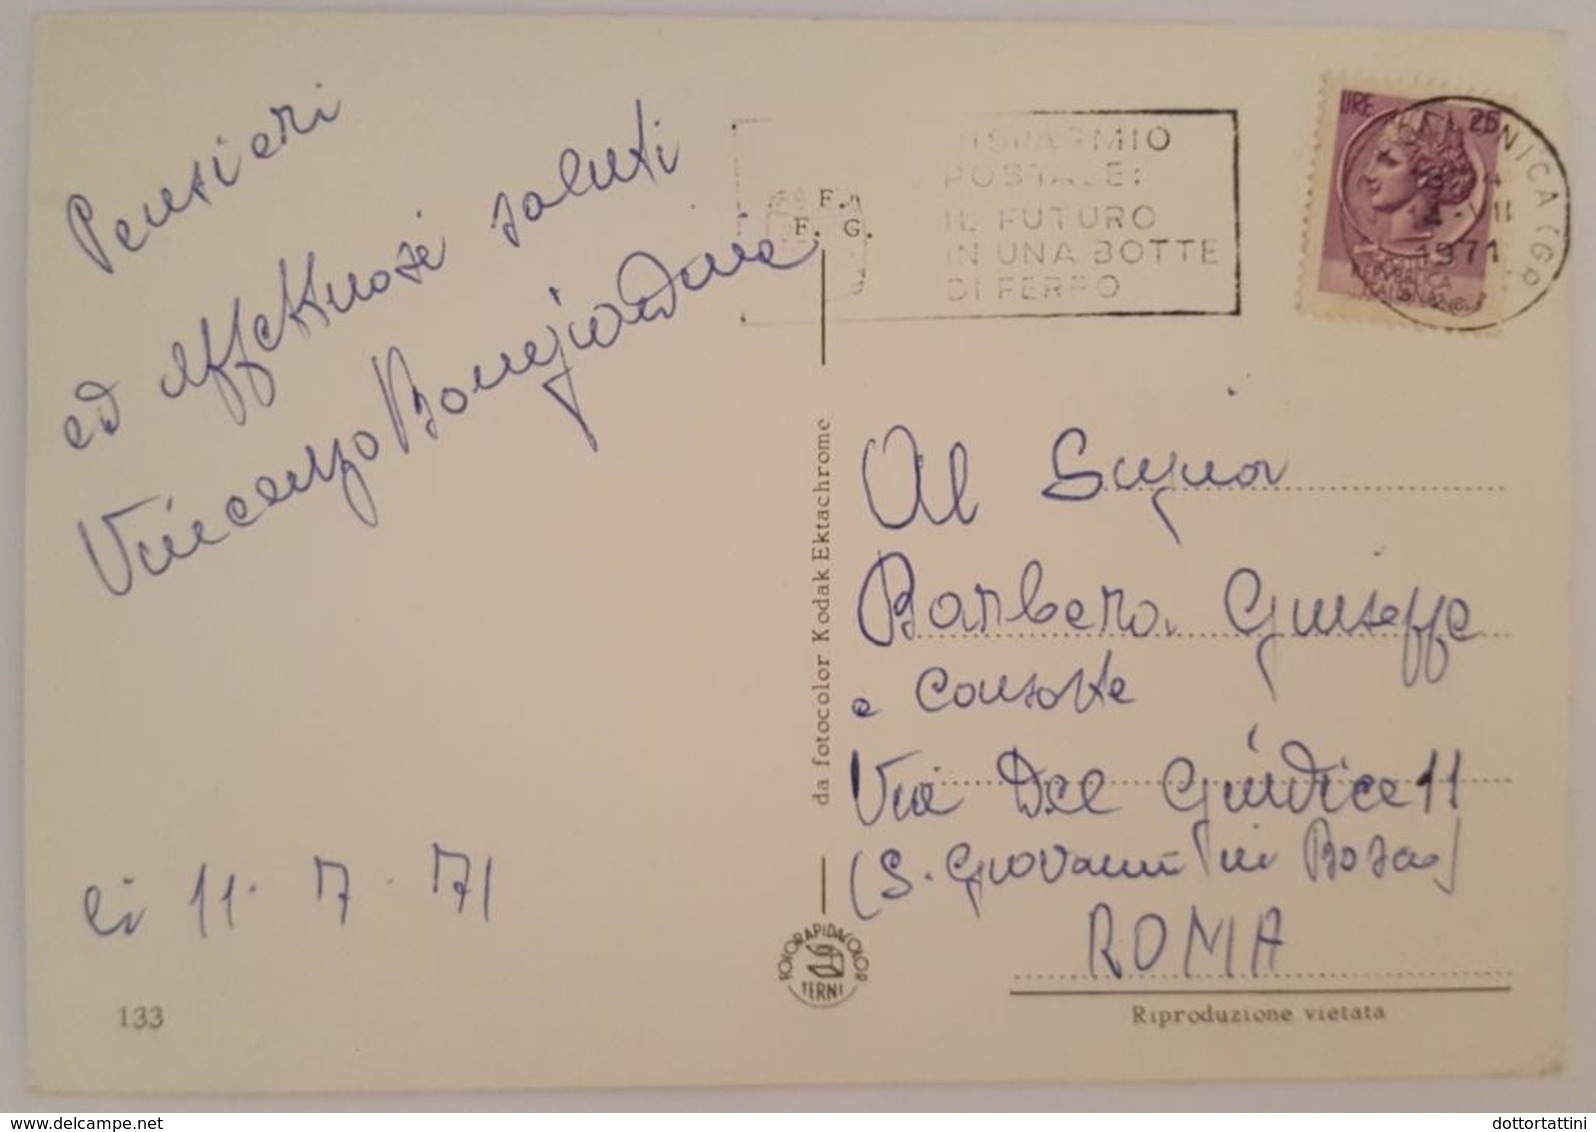 Pensieri
ed affettuosi saluti
Vincenzo Bongiardina
li 11. 7. 71
133
RISPARMIO
POSTALE:
IL FUTURO
IN UNA BOTTE
DI FERRO
F.A
F. G.
LIRE 25
1971
REPUBBLICA
ITALIANA
da fotocolor Kodak Ektachrome
FOTORAPIDACOLOR
TERNI
Al Signor
Barbera Giuseppe
e consorte
Via Del Giudice 11
(S. Giovanni in Bosco)
ROMA
Riproduzione vietata
www.delcampe.net
dottortattini